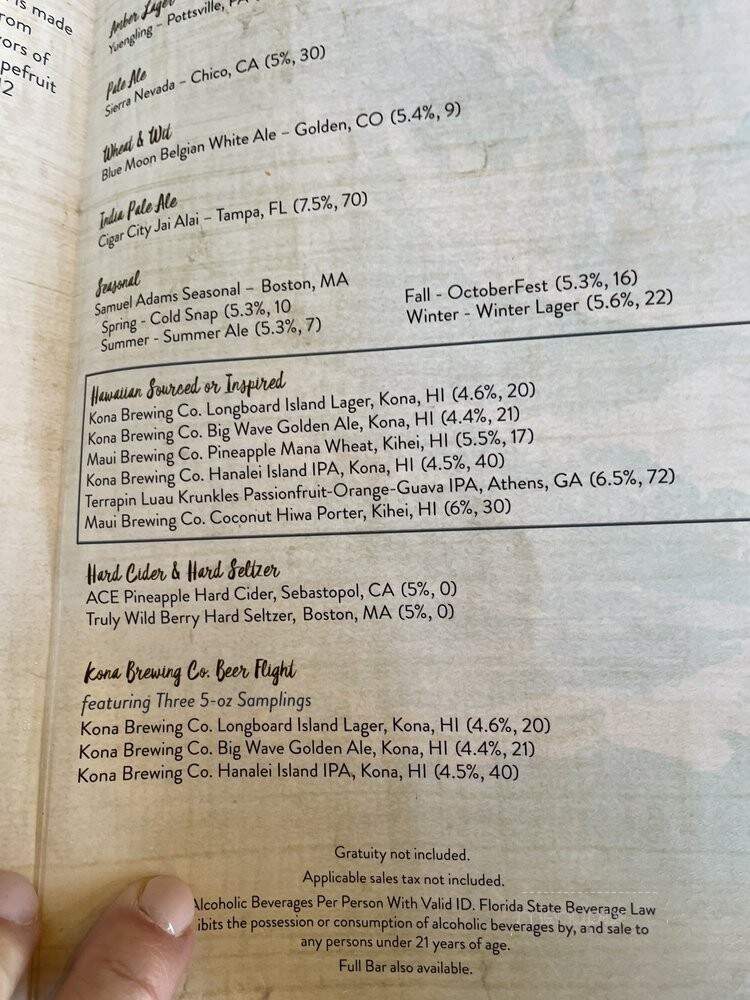 is made
rom
ors of
pefruit
12
Amber Lager
Yuengling – Pottsville,
Pale Ale
Sierra Nevada – Chico, CA (5%, 30)
Wheat & Wit
Blue Moon Belgian White Ale – Golden, CO (5.4%, 9)
India Pale Ale
Cigar City Jai Alai – Tampa, FL (7.5%, 70)
Seasonal
Samuel Adams Seasonal – Boston, MA
Spring - Cold Snap (5.3%, 10
Summer - Summer Ale (5.3%, 7)
Fall - OctoberFest (5.3%, 16)
Winter - Winter Lager (5.6%, 22)
Hawaiian Sourced or Inspired
Kona Brewing Co. Longboard Island Lager, Kona, HI (4.6%, 20)
Kona Brewing Co. Big Wave Golden Ale, Kona, HI (4.4%, 21)
Maui Brewing Co. Pineapple Mana Wheat, Kihei, HI (5.5%, 17)
Kona Brewing Co. Hanalei Island IPA, Kona, HI (4.5%, 40)
Terrapin Luau Krunkles Passionfruit-Orange-Guava IPA, Athens, GA (6.5%, 72)
Maui Brewing Co. Coconut Hiwa Porter, Kihei, HI (6%, 30)
Hard Cider & Hard Seltzer
ACE Pineapple Hard Cider, Sebastopol, CA (5%, 0)
Truly Wild Berry Hard Seltzer, Boston, MA (5%, 0)
Kona Brewing Co. Beer Flight
featuring Three 5-oz Samplings
Kona Brewing Co. Longboard Island Lager, Kona, HI (4.6%, 20)
Kona Brewing Co. Big Wave Golden Ale, Kona, HI (4.4%, 21)
Kona Brewing Co. Hanalei Island IPA, Kona, HI (4.5%, 40)
Gratuity not included.
Applicable sales tax not included.
Alcoholic Beverages Per Person With Valid ID. Florida State Beverage Law
ibits the possession or consumption of alcoholic beverages by, and sale to
any persons under 21 years of age.
Full Bar also available.